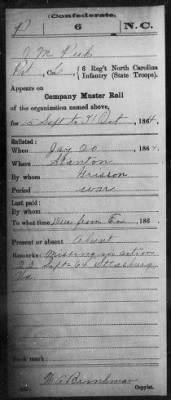 (Confederate.)
P 6 N.C.
J M Peek
Pvt, Co. C, 6 Reg't North Carolina
Infantry (State Troops).
Appears on
Company Muster Roll
of the organization named above,
for Sept to 31 Oct, 1864.
Enlisted:
When Jay 20, 1864.
Where Stanton
By whom
Period war
Last paid:
By whom
To what time 186 .
Present or absent Absent
Remarks: Missing in action
22 Sept 64 Strasburg
Va
Book mark:
Copyist.